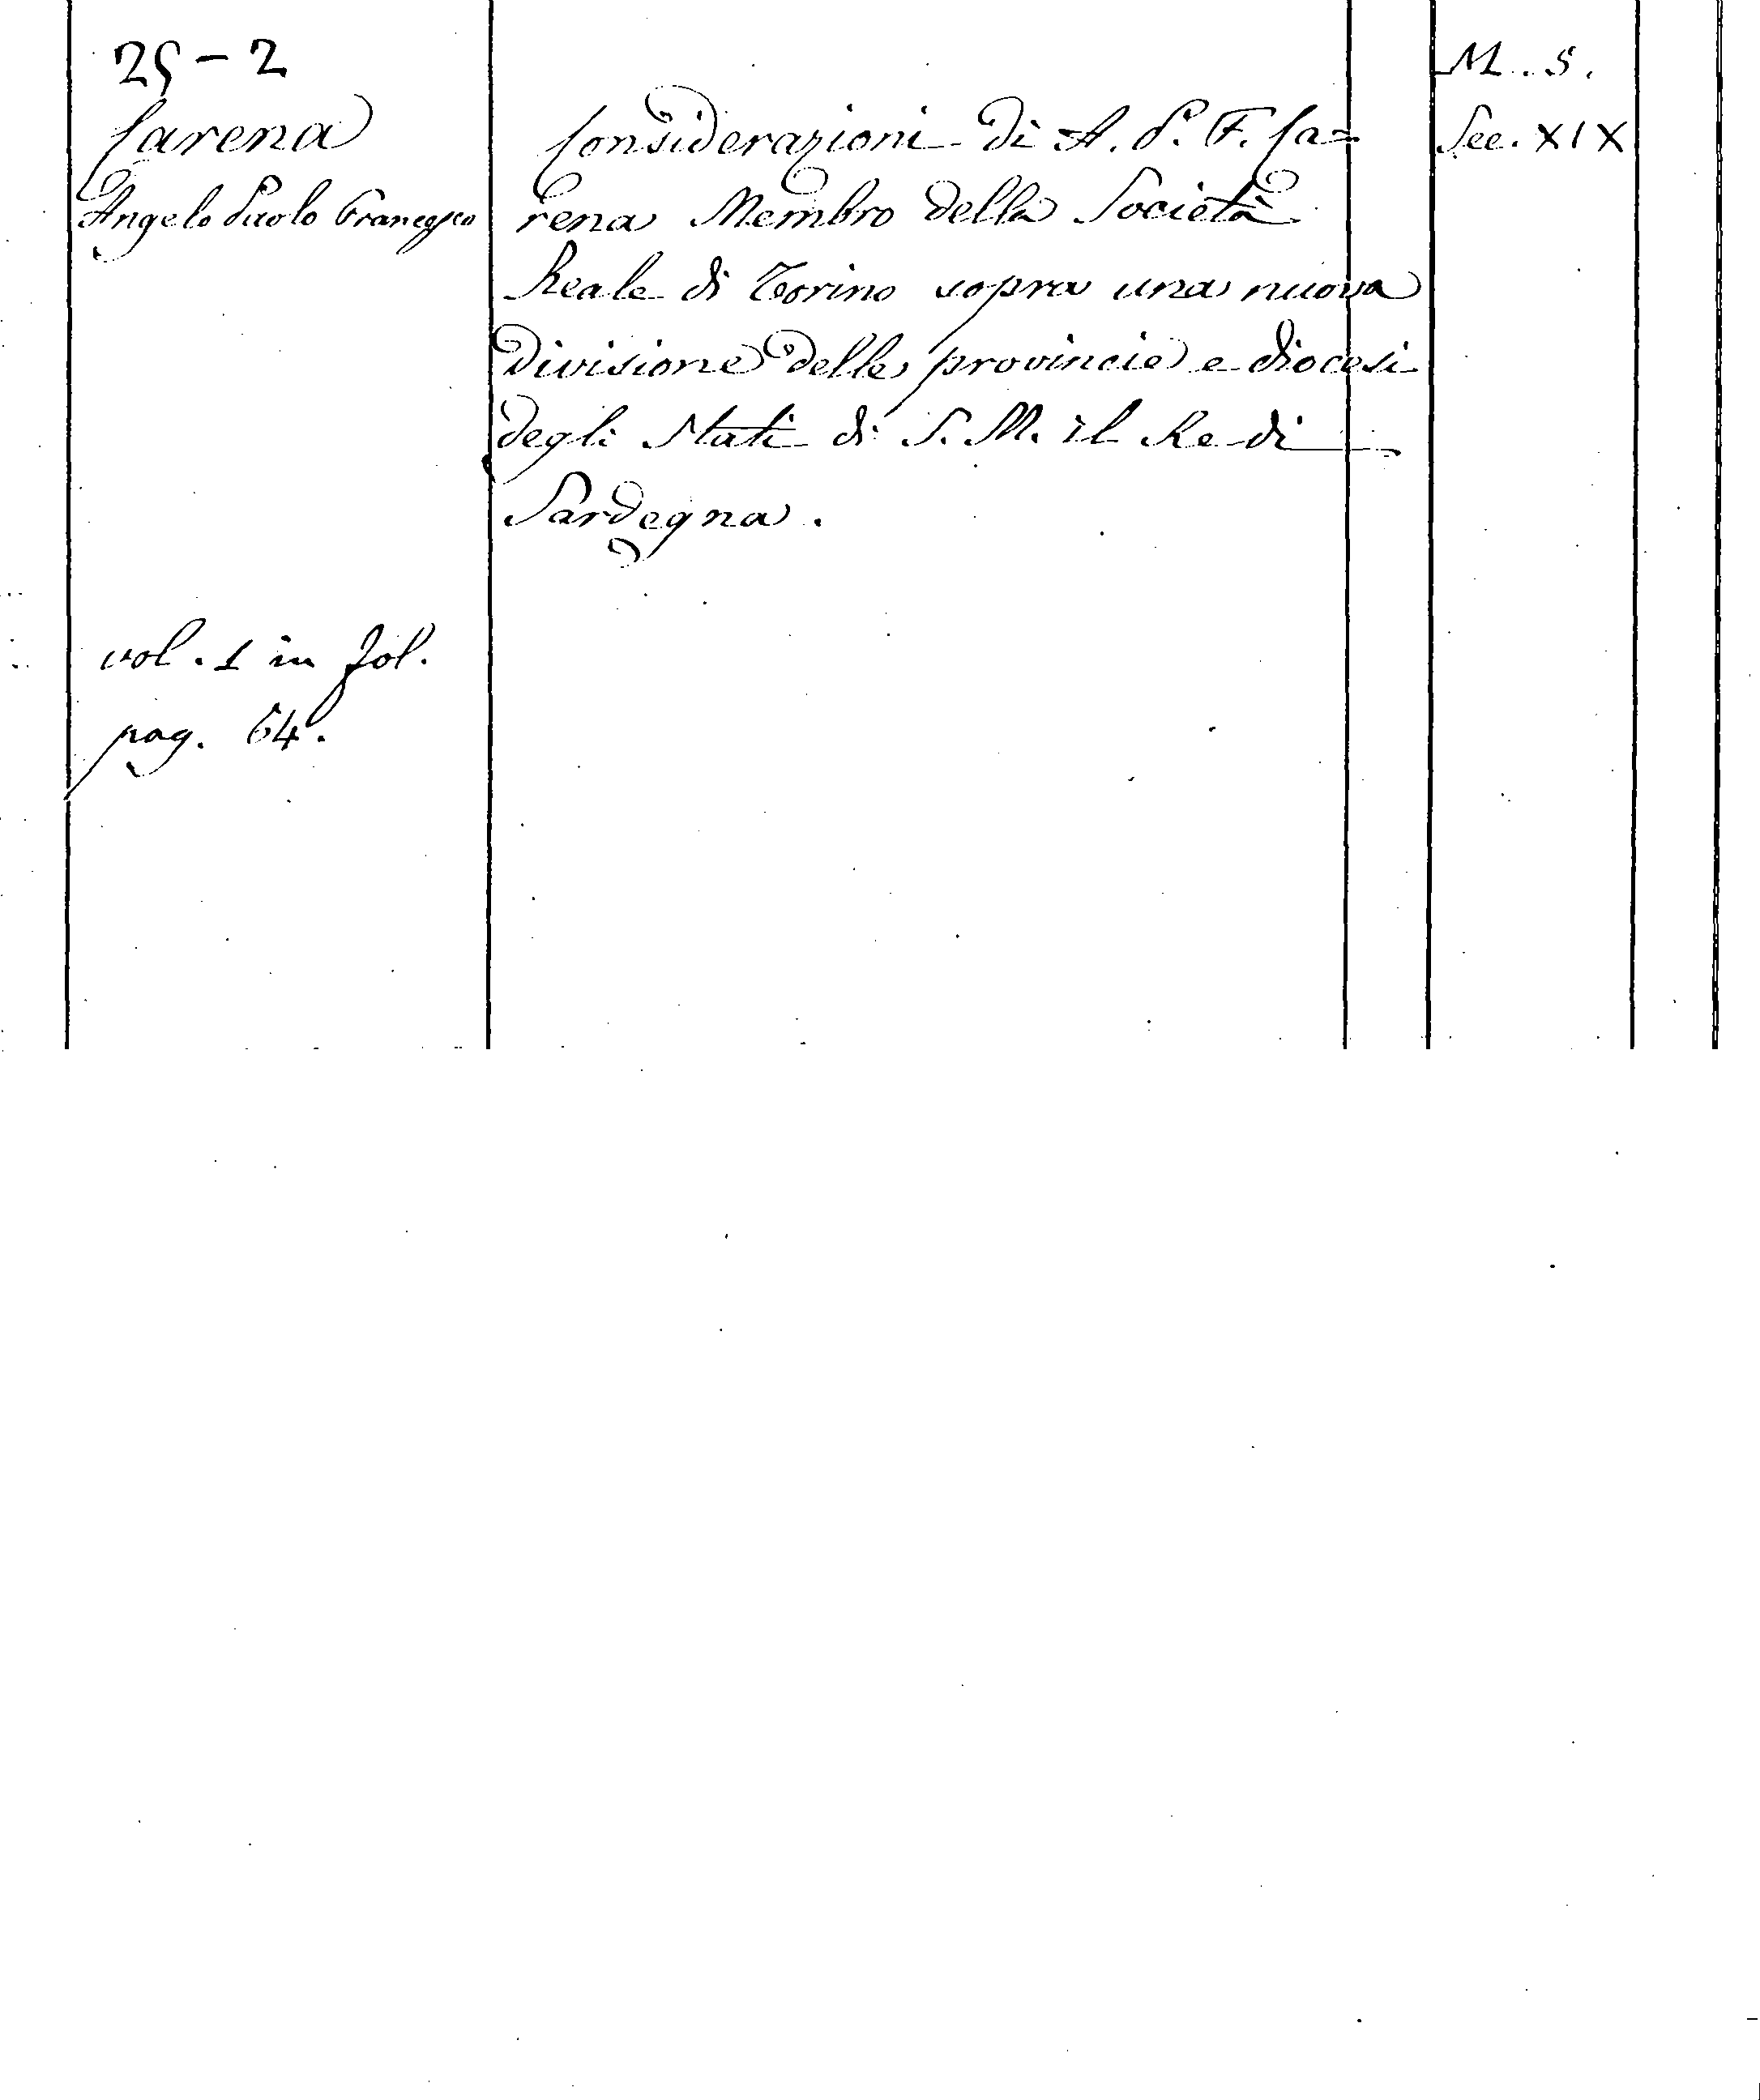 25-2
Carena
Angelo Paolo Francesco
vol. 1 in fol.
pag. 64.
Considerazioni di A. P. F. Ca=
rena Membro della Società
Reale di Torino sopra una nuova
divisione delle provincie e diocesi
degli Stati di S. M. il Re di
Sardegna.
M. S.
Sec. XIX